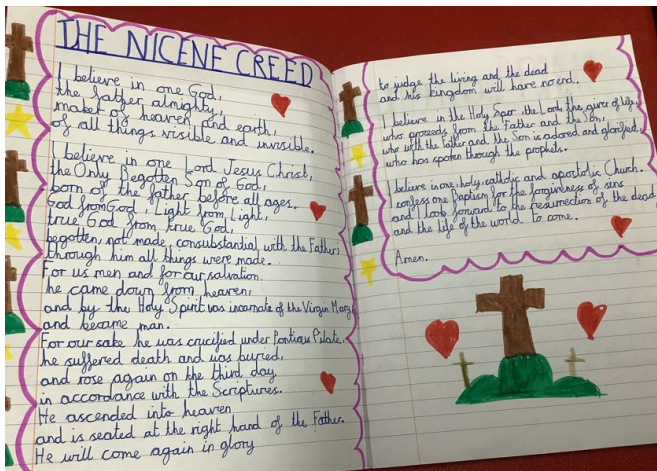 THE NICENE CREED
I believe in one God,
the father almighty,
maker of heaven and earth,
of all things visible and invisible.
I believe in one Lord Jesus Christ,
the Only Begotten Son of God,
born of the father before all ages.
God from God, Light from Light,
true God from true God,
begotten, not made, consubstantial with the Father;
through him all things were made.
For us men and for our salvation
he came down from heaven,
and by the Holy Spirit was incarnate of the Virgin Mary
and became man.
For our sake he was crucified under Pontius Pilate.
he suffered death and was buried,
and rose again on the third day
in accordance with the Scriptures.
He ascended into heaven
and is seated at the right hand of the Father.
He will come again in glory
to judge the living and the dead
and his kingdom will have no end.
I believe in the Holy the Lord, the giver of life,
who proceeds from the Father and the Son,
who with the Father and the Son is adored and glorified,
who has spoken through the prophets.
I believe in one, holy, catholic and apostolic Church.
I confess one Baptism for the forgiveness of sins
and I look forward to the resurrection of the dead
and the life of the world to come.
Amen.